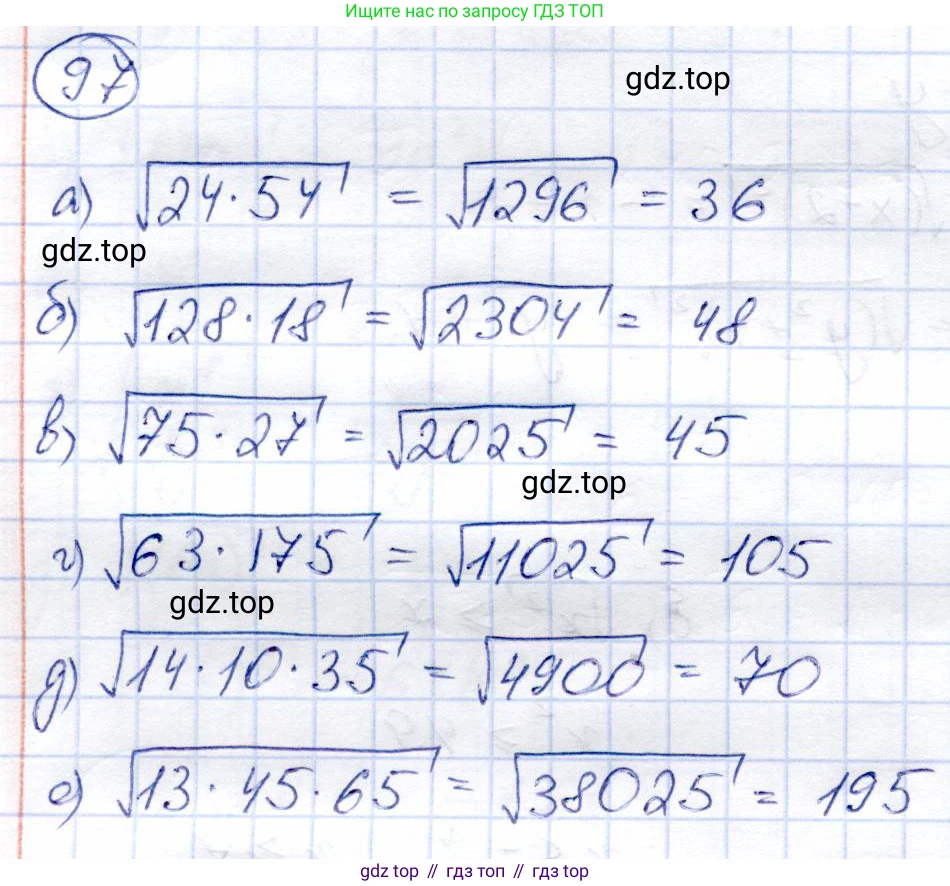 Ищите нас по запросу ГДЗ ТОП
97
gdz.top
а) √24·54 = √1296 = 36
gdz.top
б) √128·18 = √2304 = 48
в) √75·27 = √2025 = 45
gdz.top
г) √63·175 = √11025 = 105
gdz.top
д) √14·10·35 = √4900 = 70
е) √13·45·65 = √38025 = 195
gdz.top // гдз топ // gdz.top